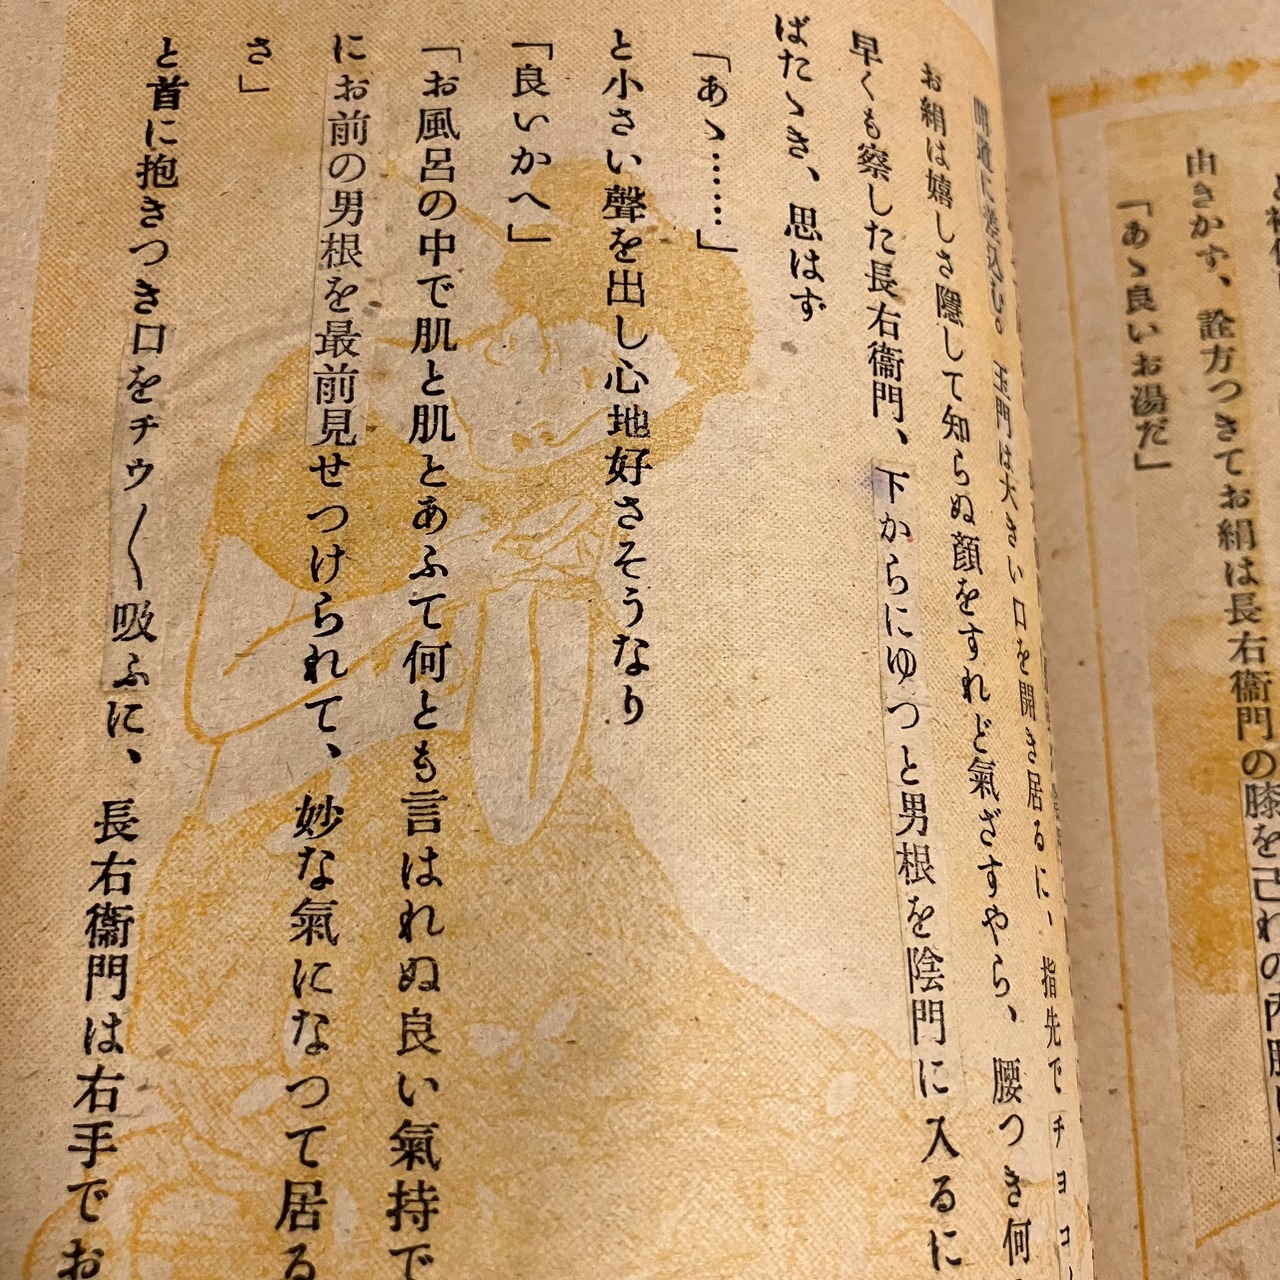 由きかす、詮方つきてお絹は長右衞門の膝を己れの
「あゝ良いお湯だ」
玉門は大きい口を開き居るに、指先でチヨコ
お絹は嬉しさ隱して知らぬ顔をすれど氣ざすやら、腰つき何
早くも察した長右衞門、下からにゆつと男根を陰門に入るに
ばたゝき、思はず
「あゝ……」
と小さい聲を出し心地好さそうなり
「良いかへ」
「お風呂の中で肌と肌とあふて何とも言はれぬ良い氣持で
にお前の男根を最前見せつけられて、妙な氣になつて居る
さ」
と首に抱きつき口をチウ〱吸ふに、長右衞門は右手でお